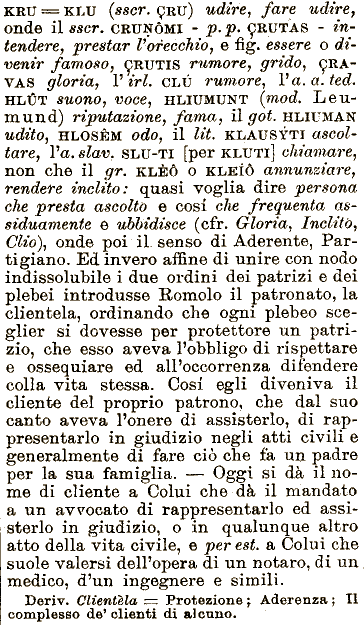 KRU = KLU (sscr. ÇRU) udire, fare udire,
onde il sscr. CRUNÔMI - p. p. ÇRUTAS - in-
tendere, prestar l'orecchio, e fig. essere o di-
venir famoso, ÇRUTIS rumore, grido, ÇRA-
VAS gloria, l'irl. CLÚ rumore, l'a. a. ted.
HLÛT suono, voce, HLIUMUNT (mod. Leu-
mund) riputazione, fama, il got. HLIUMAN
udito, HLOSÊM odo, il lit. KLAUSÝTI ascol-
tare, l'a. slav. SLU-TI [per KLUTI] chiamare,
non che il gr. KLÈÔ o KLEÍÔ annunziare,
rendere inclito: quasi voglia dire persona
che presta ascolto e cosí che frequenta as-
siduamente e ubbidisce (cfr. Gloria, Inclito,
Clio), onde poi il senso di Aderente, Par-
tigiano. Ed invero affine di unire con nodo
indissolubile i due ordini dei patrizi e dei
plebei introdusse Romolo il patronato, la
clientela, ordinando che ogni plebeo sce-
glier si dovesse per protettore un patri-
zio, che esso aveva l'obbligo di rispettare
e ossequiare ed all'occorrenza difendere
colla vita stessa. Cosí egli diveniva il
cliente del proprio patrono, che dal suo
canto aveva l'onere di assisterlo, di rap-
presentarlo in giudizio negli atti civili e
generalmente di fare ciò che fa un padre
per la sua famiglia. — Oggi si dà il no-
me di cliente a Colui che dà il mandato
a un avvocato di rappresentarlo ed assi-
sterlo in giudizio, o in qualunque altro
atto della vita civile, e per est. a Colui che
suole valersi dell'opera di un notaro, di un
medico, d'un ingegnere e simili.
Deriv. Clientèla = Protezione; Aderenza; Il
complesso de' clienti di alcuno.